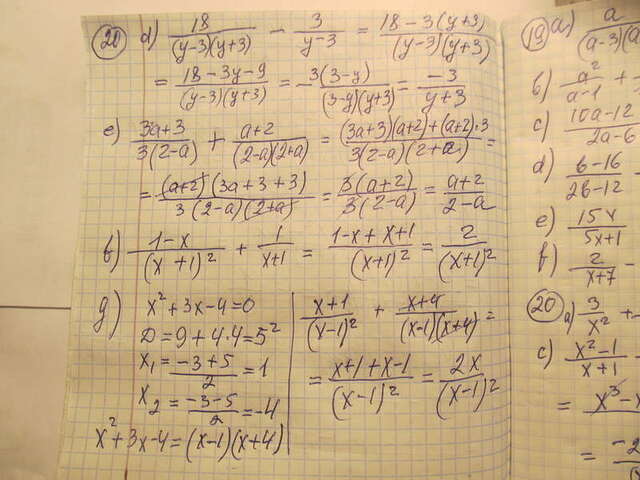 20 d) 18/((y-3)(y+3)) - 3/(y-3) = (18-3(y+3))/((y-3)(y+3))
= (18-3y-9)/((y-3)(y+3)) = -3(3-y)/((3-y)(y+3)) = -3/(y+3)
e) (3a+3)/(3(2-a)) + (a+2)/((2-a)(2+a)) = ((3a+3)(a+2)+(a+2)·3)/(3(2-a)(2+a)) =
= ((a+2)(3a+3+3))/(3(2-a)(2+a)) = 3(a+2)/(3(2-a)) = (a+2)/(2-a)
f) (1-x)/(x+1)² + 1/(x+1) = (1-x+x+1)/(x+1)² = 2/(x+1)²
g) x²+3x-4=0
D=9+4·4=5²
x₁=(-3+5)/2=1
x₂=(-3-5)/2=-4
x²+3x-4=(x-1)(x+4)
(x+1)/(x-1)² + (x+4)/((x-1)(x+4)) =
= (x+1+x-1)/(x-1)² = 2x/(x-1)²
19 a) a
(a-3)(a
b) a²/(a-1) +
c) 10a-12
2a-6
d) b-16
2b-12
e) 15x
5x+1
f) 2/(x+7) -
20 a) 3/x² +
c) (x²-1)/(x+1)
= x³-x
= -2